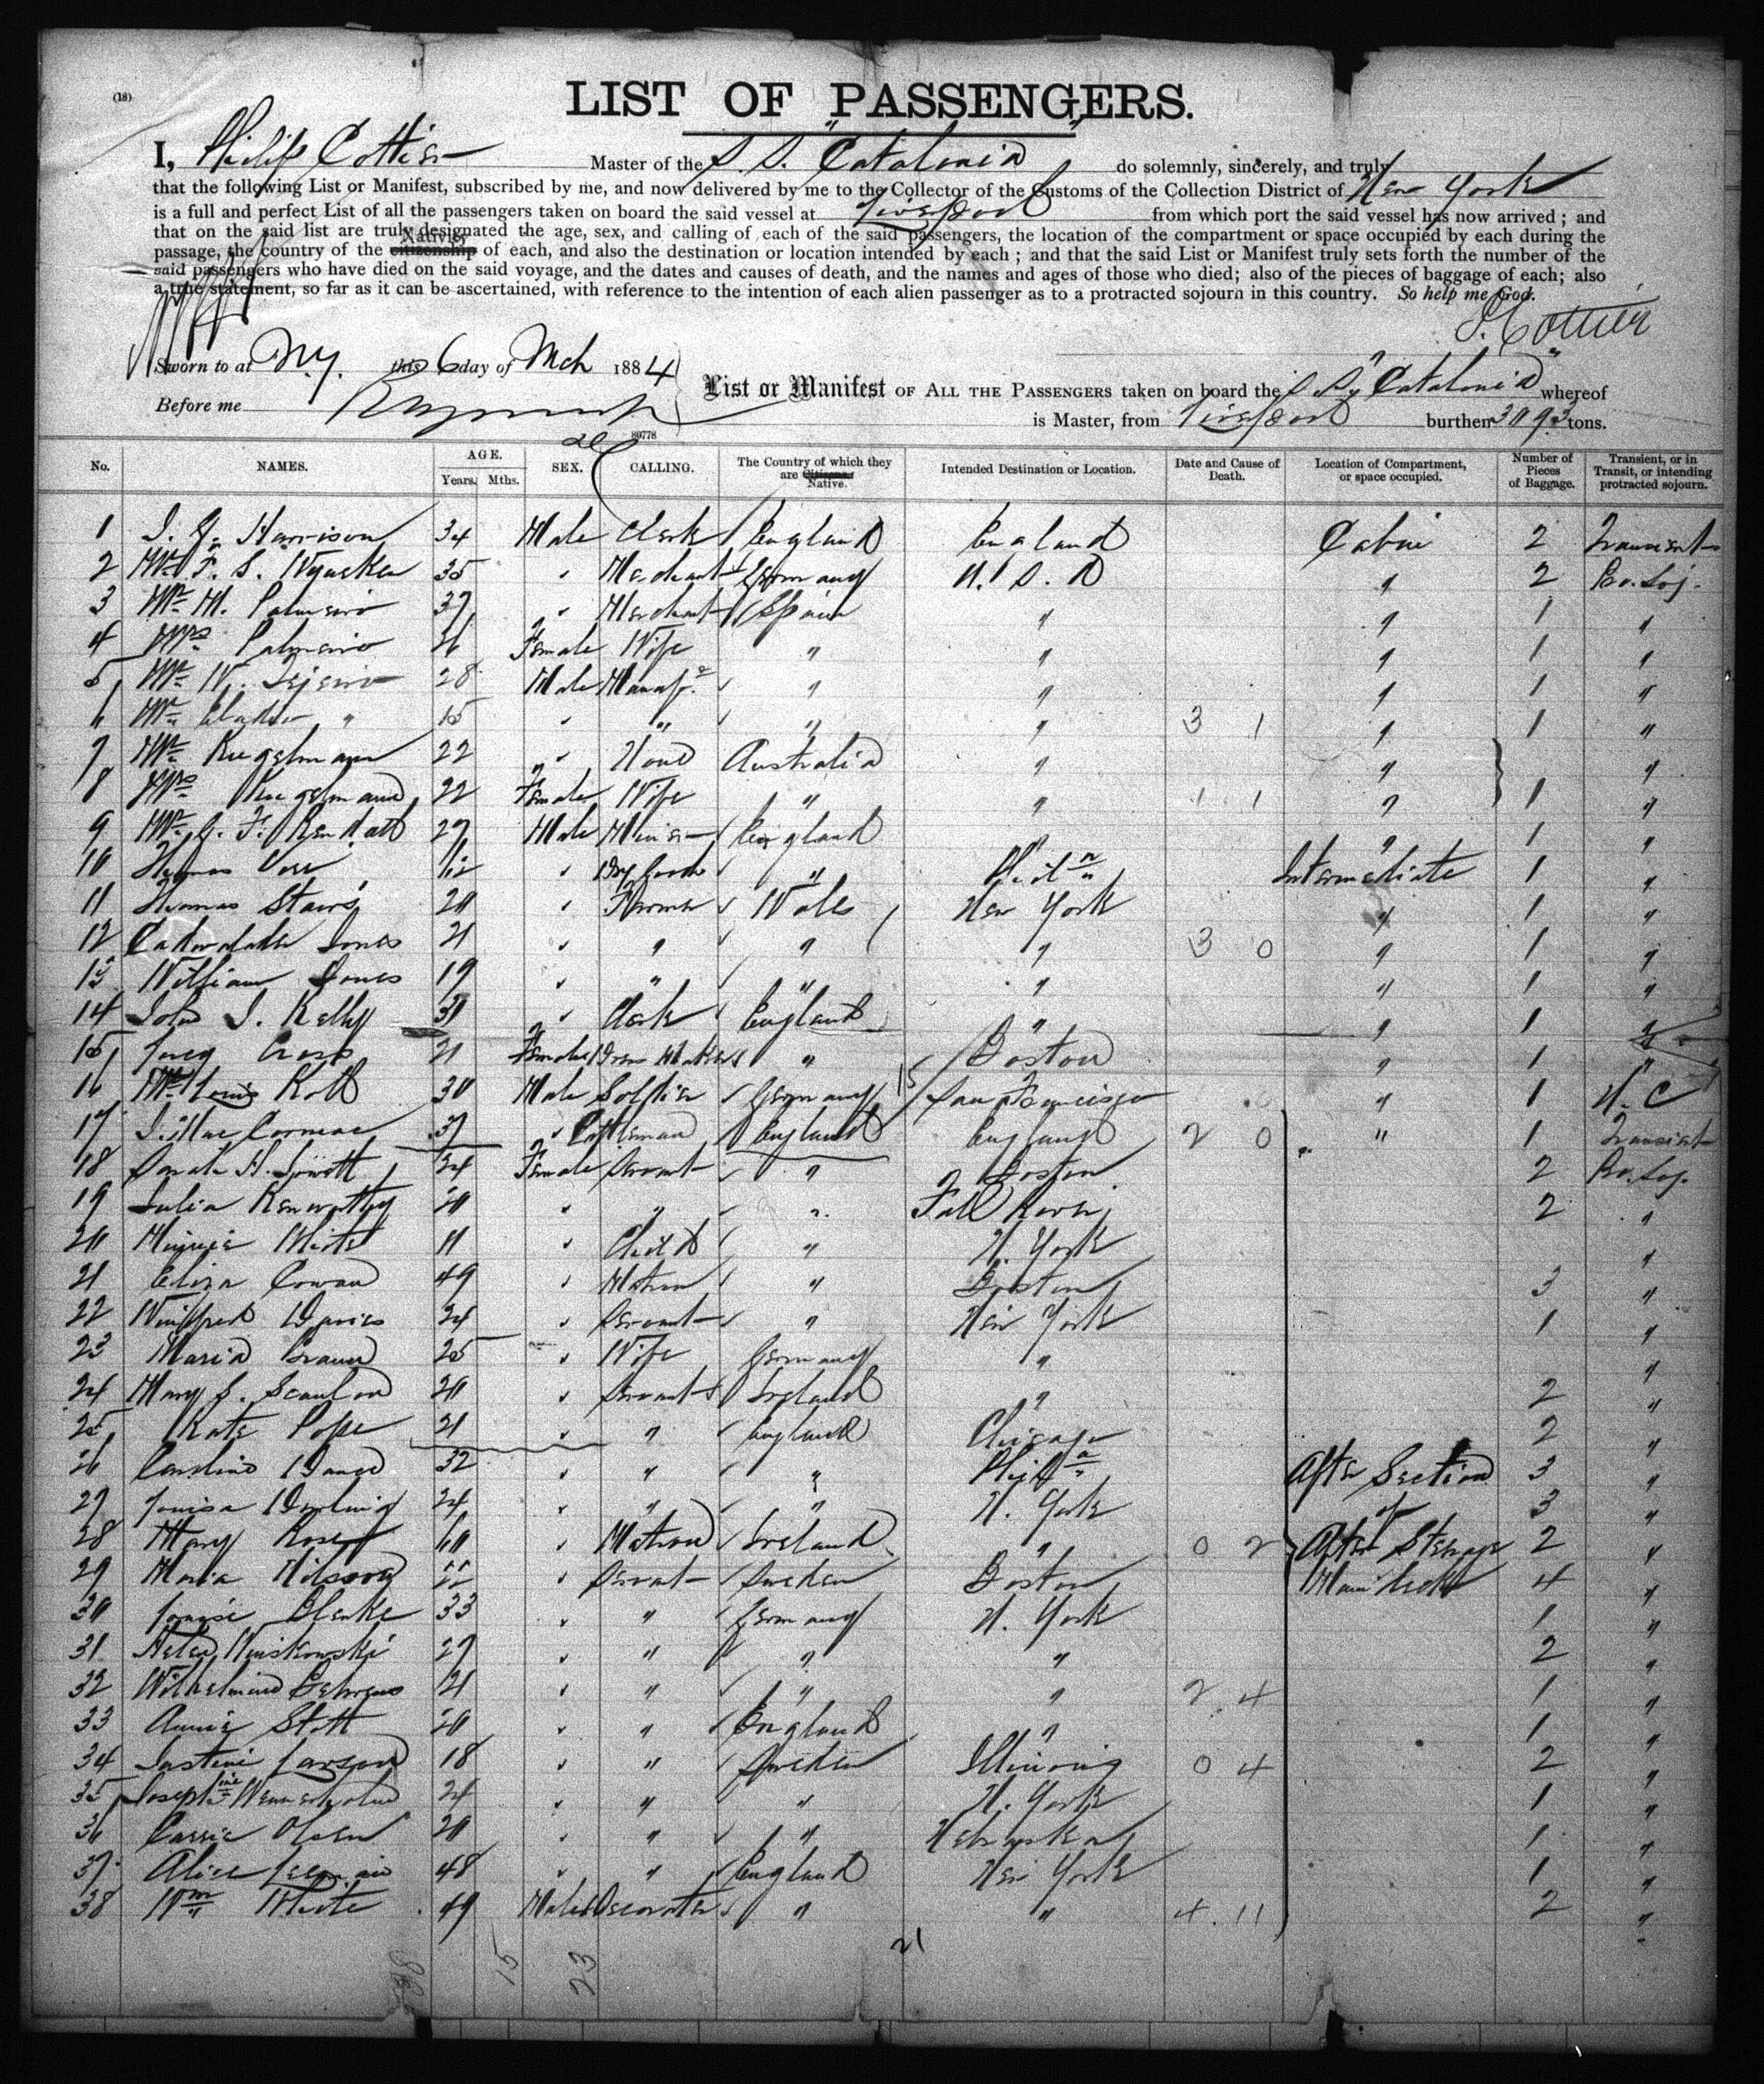 (18)
LIST OF PASSENGERS.
I, Philip Cottier Master of the S. S. "Catalonia" do solemnly, sincerely, and truly
that the following List or Manifest, subscribed by me, and now delivered by me to the Collector of the Customs of the Collection District of New York
is a full and perfect List of all the passengers taken on board the said vessel at Liverpool from which port the said vessel has now arrived; and
that on the said list are truly designated the age, sex, and calling of each of the said passengers, the location of the compartment or space occupied by each during the
Nativity
passage, the country of the citizenship of each, and also the destination or location intended by each; and that the said List or Manifest truly sets forth the number of the
said passengers who have died on the said voyage, and the dates and causes of death, and the names and ages of those who died; also of the pieces of baggage of each; also
a true statement, so far as it can be ascertained, with reference to the intention of each alien passenger as to a protracted sojourn in this country. So help me God.
P. Cottier
Sworn to at N.Y. this 6 day of Mch 1884
List or Manifest OF ALL THE PASSENGERS taken on board the S. S. "Catalonia" whereof
Before me
is Master, from Liverpool burthen 3093 tons.
80778
No. NAMES. AGE. Years. Mths. SEX. CALLING. The Country of which they are Citizens. Native. Intended Destination or Location. Date and Cause of Death. Location of Compartment, or space occupied. Number of Pieces of Baggage. Transient, or in Transit, or intending protracted sojourn.
1 Harrison 34 Male Clerk England England Cabin 2 Transient
2 Mr F. S. 35 " Merchant Germany U. S. A " 2 Pro. Soj.
3 Mr M. Palmeiro 37 " Merchant Spain " " 1 "
4 Mrs Palmeiro 26 Female Wife " " " 1 "
5 Mr 28 Male Manafr " " " 1 "
6 Mr " 15 " " " " 3 1 " 1 "
7 Mr Kugelmann 22 " None Australia " " "
8 Mrs Kugelmann 22 Female Wife " " 1 1 " 1 "
9 Mr 27 Male England " " 1 "
10 Thomas " Dry Goods " Phila Intermediate 1 "
11 Thomas Stairs 20 " Farmer Wales New York " 1 "
12 Cadwalader Jones 21 " " " " 3 0 " 1 "
13 William Jones 19 " " " " " 1 "
14 John J. Kelly " Clerk England " " 1 "
15 Cross 21 Female Dress Maker " Boston " 1 "
16 Mr Louis Kolb 30 Male Soldier Germany San Francisco " 1 U. C
17 " England England 2 0 " 1 Transient
18 Sarah H. Jowett 24 Female Servant " Boston 2 Pro. Soj.
19 Julia Kenworthy 20 " " " Fall River 2 "
20 Minnie White 11 " Child " N. York "
21 Eliza Cowan 49 " Matron " Boston 3 "
22 Winifred Davies 24 " Servant " New York 1 "
23 Maria Braun 25 " Wife Germany " "
24 Mary J. Scanlon 20 " Servant Ireland " 2 "
25 Kate Pope 21 " " England Chicago 2 "
26 Caroline 32 " " " Phila After Section 3 "
27 Louisa 24 " " " N. York of 3 "
28 Mary 60 " Matron Ireland " 0 2 After Steerage 2 "
29 Maria Nilsson 22 " Servant Sweden Boston Main Deck 4 "
30 Louise 33 " " Germany N. York 1 "
31 27 " " " " 2 "
32 Wilhelmine Behrens 21 " " " " 2 4 1 "
33 Annie Stott 20 " " England " 1 "
34 Larsson 18 " " Sweden 0 4 2 "
35 Josephine 24 " " " N. York 1 "
36 Carrie Olsen 20 " " " Nebraska 1 "
37 Alice 48 " " England New York 1 "
38 Wm White 49 Male Decorator " " 4 11 2 "
15 23 21